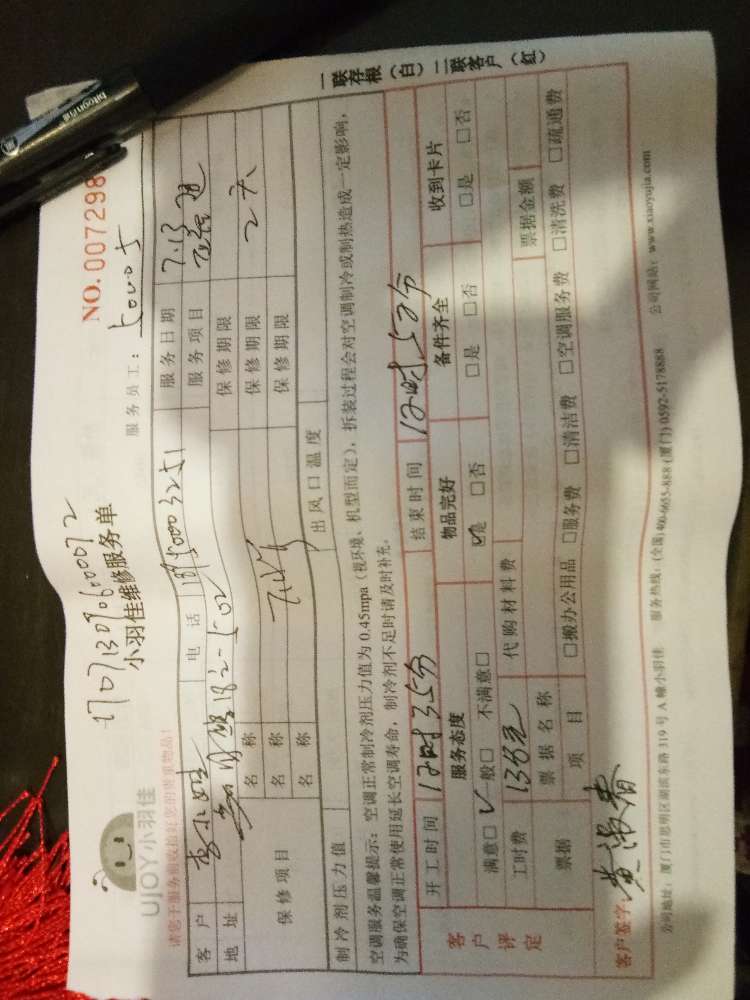 bitoqn
UJOY小羽佳
NO. 007298
小羽佳维修服务单
服务员工:
请您于服务前收拾好您的贵重物品!
客户
电话
服务日期 7.13
地址
182-502
服务项目
保修项目
名称
保修期限
名称
保修期限
名称
保修期限
制冷剂压力值
出风口温度
空调服务温馨提示:空调正常制冷剂压力值为0.45mpa(视环境、机型而定),拆装过程会对空调制冷或制热造成一定影响,
为确保空调正常使用延长空调寿命,制冷剂不足时请及时补充。
客户评定
开工时间 12时35分
结束时间 12时52分
服务态度
物品完好
备件齐全
收到卡片
满意□ 一般□ 不满意□
□是 □否
□是 □否
□是 □否
工时费
代购材料费
票据金额
票据
票据名称
项目
□搬办公用品 □服务费 □清洁费 □空调服务费 □清洗费 □疏通费
客户签字: 黄淑春
公司地址:厦门市思明区湖滨东路319号A幢小羽佳 服务热线:(全国)400-6655-888(厦门)0592-5178888 公司网站:www.xiaoyujia.com
一联存根(白)二联客户(红)